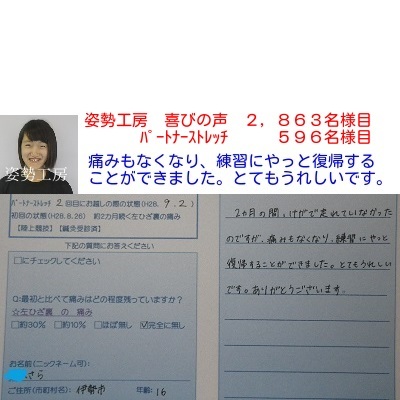 姿勢工房　喜びの声　２，８６３名様目
ﾊﾟｰﾄﾅｰｽﾄﾚｯﾁ　５９６名様目
姿勢工房
痛みもなくなり、練習にやっと復帰する
ことができました。とてもうれしいです。
ﾊﾟｰﾄﾅｰｽﾄﾚｯﾁ 2回目にお越しの際の状態(H28. 9.2)
初回の状態(H28.8.26) 約2カ月続く左ひざ裏の痛み
【陸上競技】【鍼灸受診済】
下記の質問にお答えください
□にチェックしてください
Q:最初と比べて痛みはどの程度残っていますか？
☆左ひざ裏 の 痛み
□約30％ □約10％ □ほぼ無し ☑完全に無し
お名前(ニックネーム可):
さら
ご住所(市町村名): 伊勢市 年齢: 16
2カ月の間、けがで走れていなかった
のですが、痛みもなくなり、練習にやっと
復帰することができました。とてもうれしい
です。ありがとうございます。